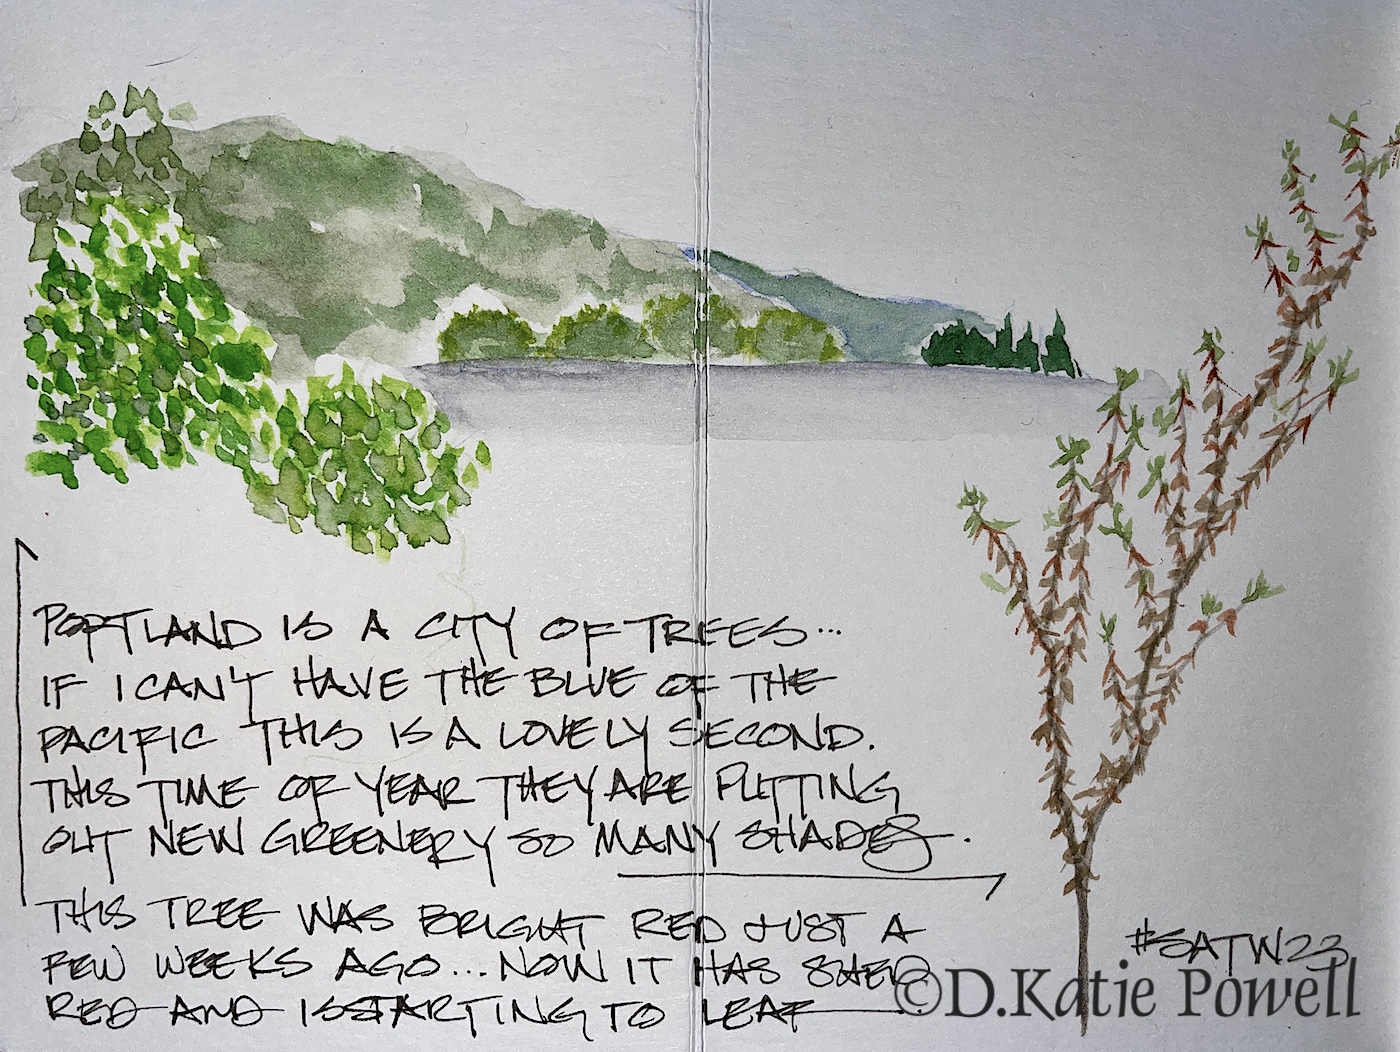 PORTLAND IS A CITY OF TREES...
IF I CAN'T HAVE THE BLUE OF THE
PACIFIC THIS IS A LOVELY SECOND.
THIS TIME OF YEAR THEY ARE PUTTING
OUT NEW GREENERY SO MANY SHADES.
THIS TREE WAS BRIGHT RED JUST A
FEW WEEKS AGO... NOW IT HAS SHED
RED AND IS STARTING TO LEAF
#SATW23
©D.Katie Powell